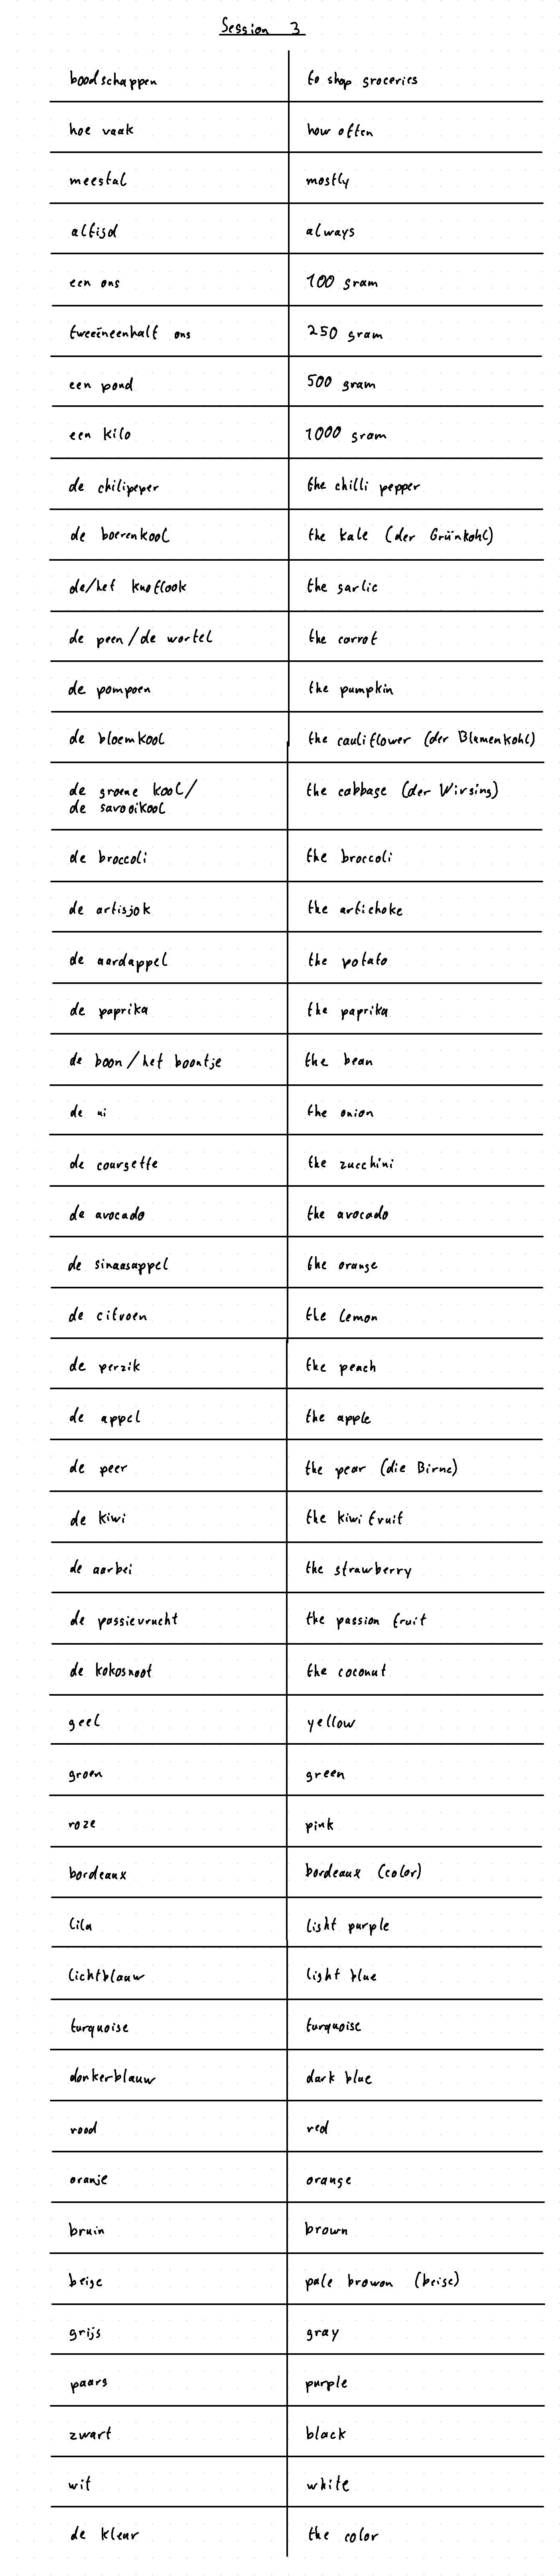 Session 3
boodschappen to shop groceries
hoe vaak how often
meestal mostly
altijd always
een ons 100 gram
tweeëneenhalf ons 250 gram
een pond 500 gram
een kilo 1000 gram
de chilipeper the chilli pepper
de boerenkool the kale (der Grünkohl)
de/het knoflook the garlic
de peen/de wortel the carrot
de pompoen the pumpkin
de bloemkool the cauliflower (der Blumenkohl)
de groene kool/ the cabbage (der Wirsing)
de savooikool
de broccoli the broccoli
de artisjok the artichoke
de aardappel the potato
de paprika the paprika
de boon/het boontje the bean
de ui the onion
de courgette the zucchini
de avocado the avocado
de sinaasappel the orange
de citroen the lemon
de perzik the peach
de appel the apple
de peer the pear (die Birne)
de kiwi the kiwi fruit
de aarbei the strawberry
de passievrucht the passion fruit
de kokosnoot the coconut
geel yellow
groen green
roze pink
bordeaux bordeaux (color)
lila light purple
lichtblauw light blue
turquoise turquoise
donkerblauw dark blue
rood red
oranje orange
bruin brown
beige pale browon (beige)
grijs gray
paars purple
zwart black
wit white
de kleur the color